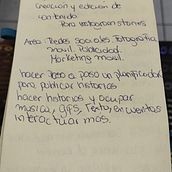 creación y edición de
contenido
Para instagram stories
Area: Redes sociales, Fotografía
movil, Publicidad,
Marketing movil.
hacer paso a paso un planificador
para publicar historias
hacer historias y ocupar
musica, gifs, textos, encuestas
interactuar mas.